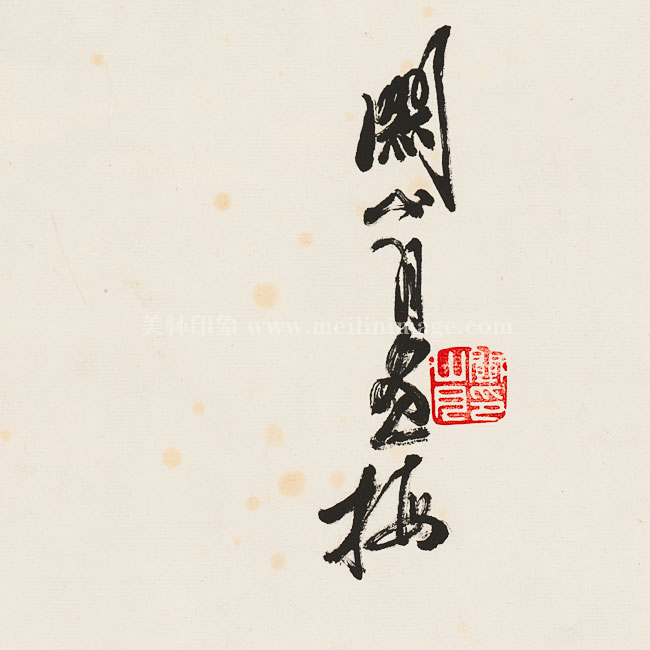 關山月畫梅
美林印象 www.meilinimage.com